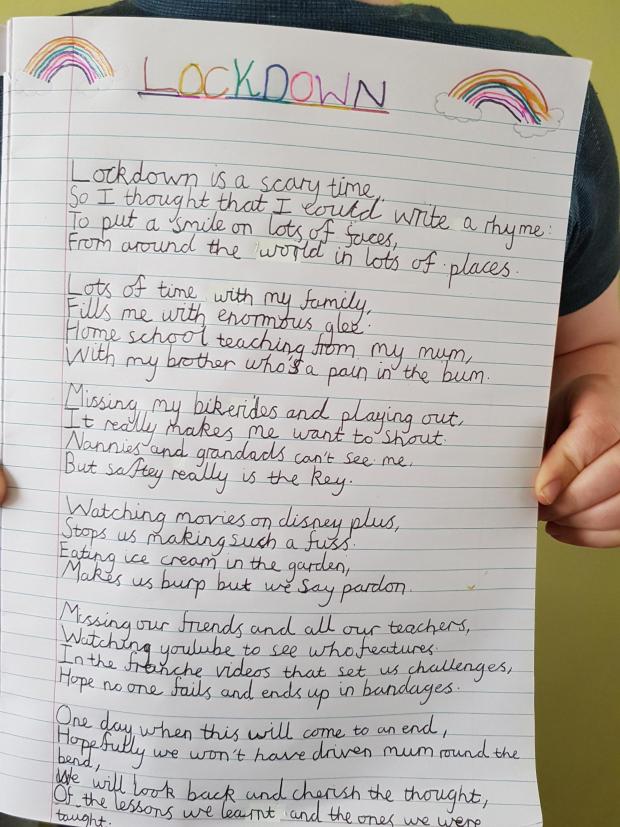 LOCKDOWN
Lockdown is a scary time,
So I thought that I could write a rhyme:
To put a smile on lots of faces,
From around the world in lots of places.
Lots of time with my family,
Fills me with enormous glee.
Home school teaching from my mum,
With my brother who's a pain in the bum.
Missing my bikerides and playing out,
It really makes me want to shout.
Nannies and grandads can't see me,
But saftey really is the key.
Watching movies on disney plus,
Stops us making such a fuss.
Eating ice cream in the garden,
Makes us burp but we say pardon.
Missing our friends and all our teachers,
Watching youtube to see who features.
In the franche videos that set us challenges,
Hope no one fails and ends up in bandages.
One day when this will come to an end,
Hopefully we won't have driven mum round the
bend,
We will look back and cherish the thought,
Of the lessons we learnt and the ones we were
taught.